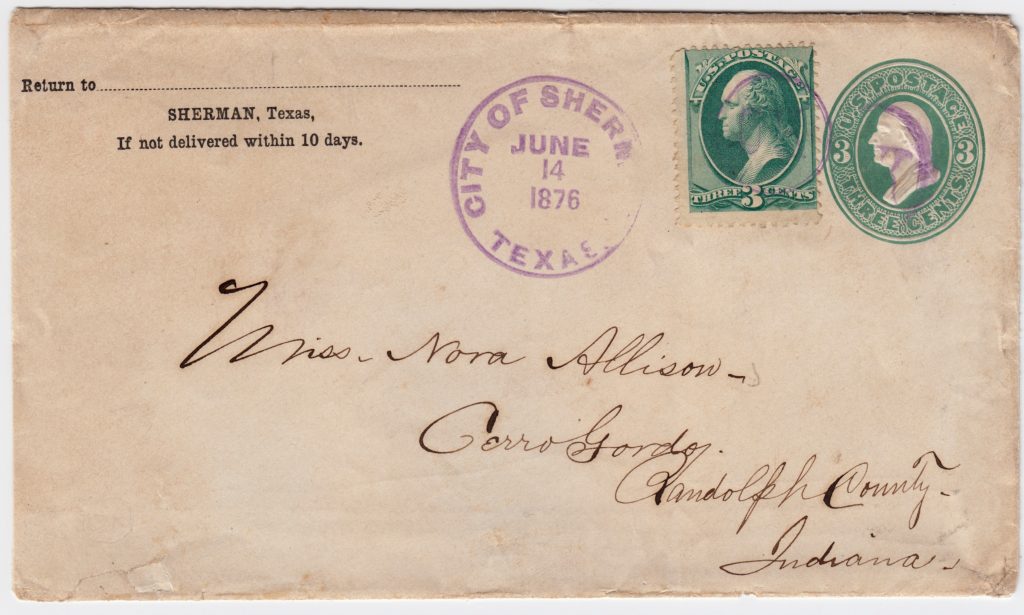 Return to
SHERMAN, Texas,
If not delivered within 10 days.
CITY OF SHERM
JUNE
14
1876
TEXAS.
U.S. POSTAGE
THREE 3 CENTS
U.S. POSTAGE
3 3
THREE CENTS
Miss. Nora Allison
Cerro Gordo.
Randolph County
Indiana